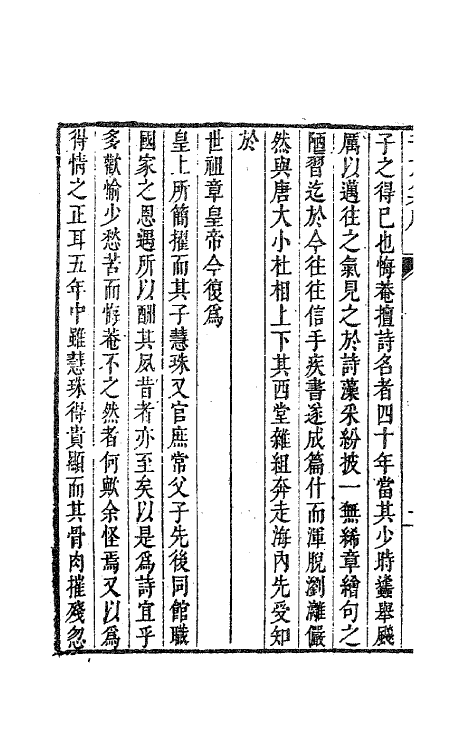 子之得已也悔菴擅詩名者四十年當其少時蠭舉飈
厲以邁往之氣見之於詩藻采紛披一無絺章繪句之
陋習迄於今往往信手疾書遂成篇什而渾脫瀏灕儼
然與唐大小杜相上下其西堂雜組奔走海內先受知
於
世祖章皇帝今復爲
皇上所簡擢而其子慧珠又官庶常父子先後同館職
國家之恩遇所以酬其夙昔者亦至矣以是爲詩宜乎
多歡愉少愁苦而悔菴不之然者何歟余怪焉又以爲
得情之正耳五年中雖慧珠得貴顯而其骨肉摧殘忽